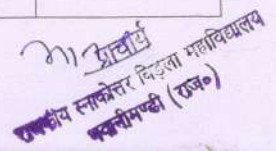 प्राचार्य
राजकीय स्नाकोत्तर विड़ला महाविद्यालय
भवानीमण्डी (राज०)